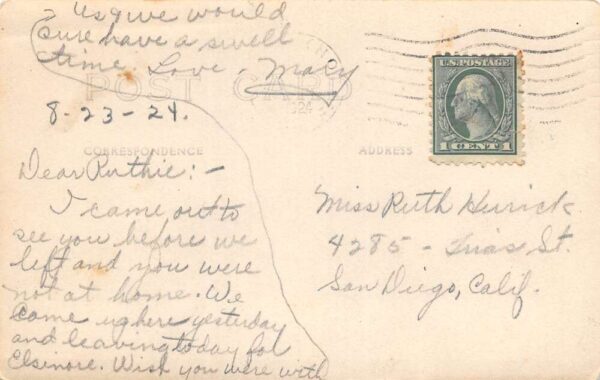 us & we would
sure have a swell
time. Love, Mary
POST CARD
8-23-24.
CORRESPONDENCE
ADDRESS
U.S. POSTAGE
1 CENT 1
Dear Ruthie:-
I came out to
see you before we
left and you were
not at home. We
came up here yesterday
and leaving today for
Elsinore. Wish you were with
Miss Ruth
4285 - St.
San Diego, Calif.